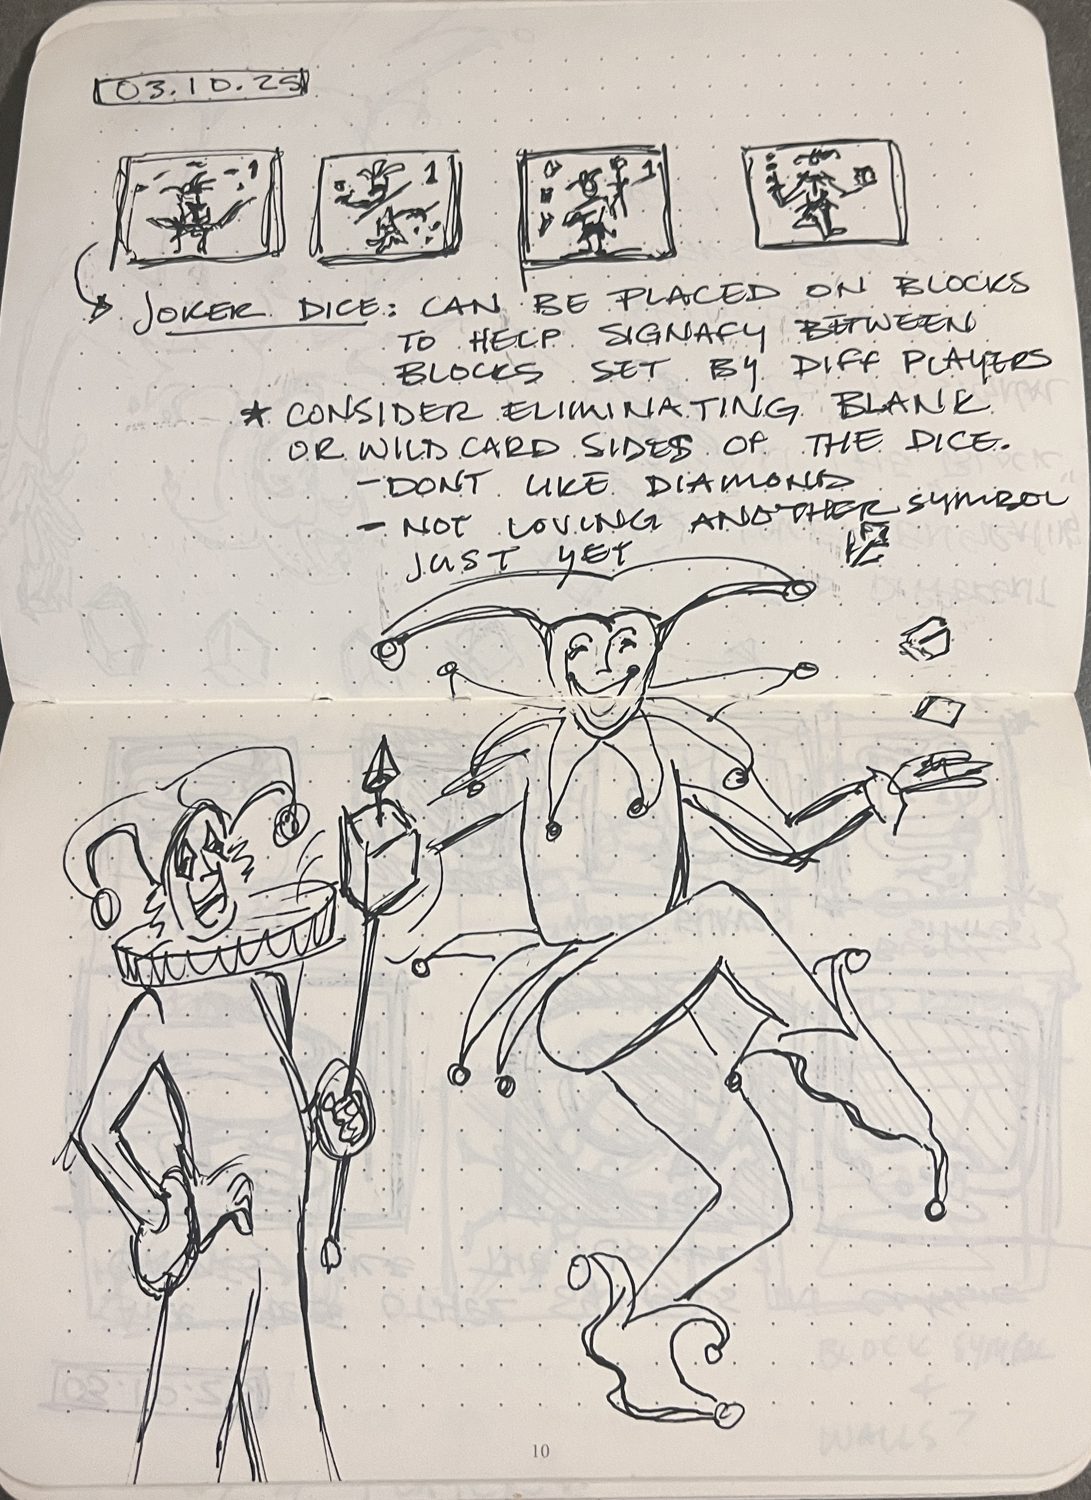 03.10.25
1
1
1
JOKER DICE: CAN BE PLACED ON BLOCKS
TO HELP SIGNAFY BETWEEN
BLOCKS SET BY DIFF PLAYERS
* CONSIDER ELIMINATING BLANK
OR WILD CARD SIDES OF THE DICE.
- DONT LIKE DIAMOND
- NOT LOVING ANOTHER SYMBOL
JUST YET
10